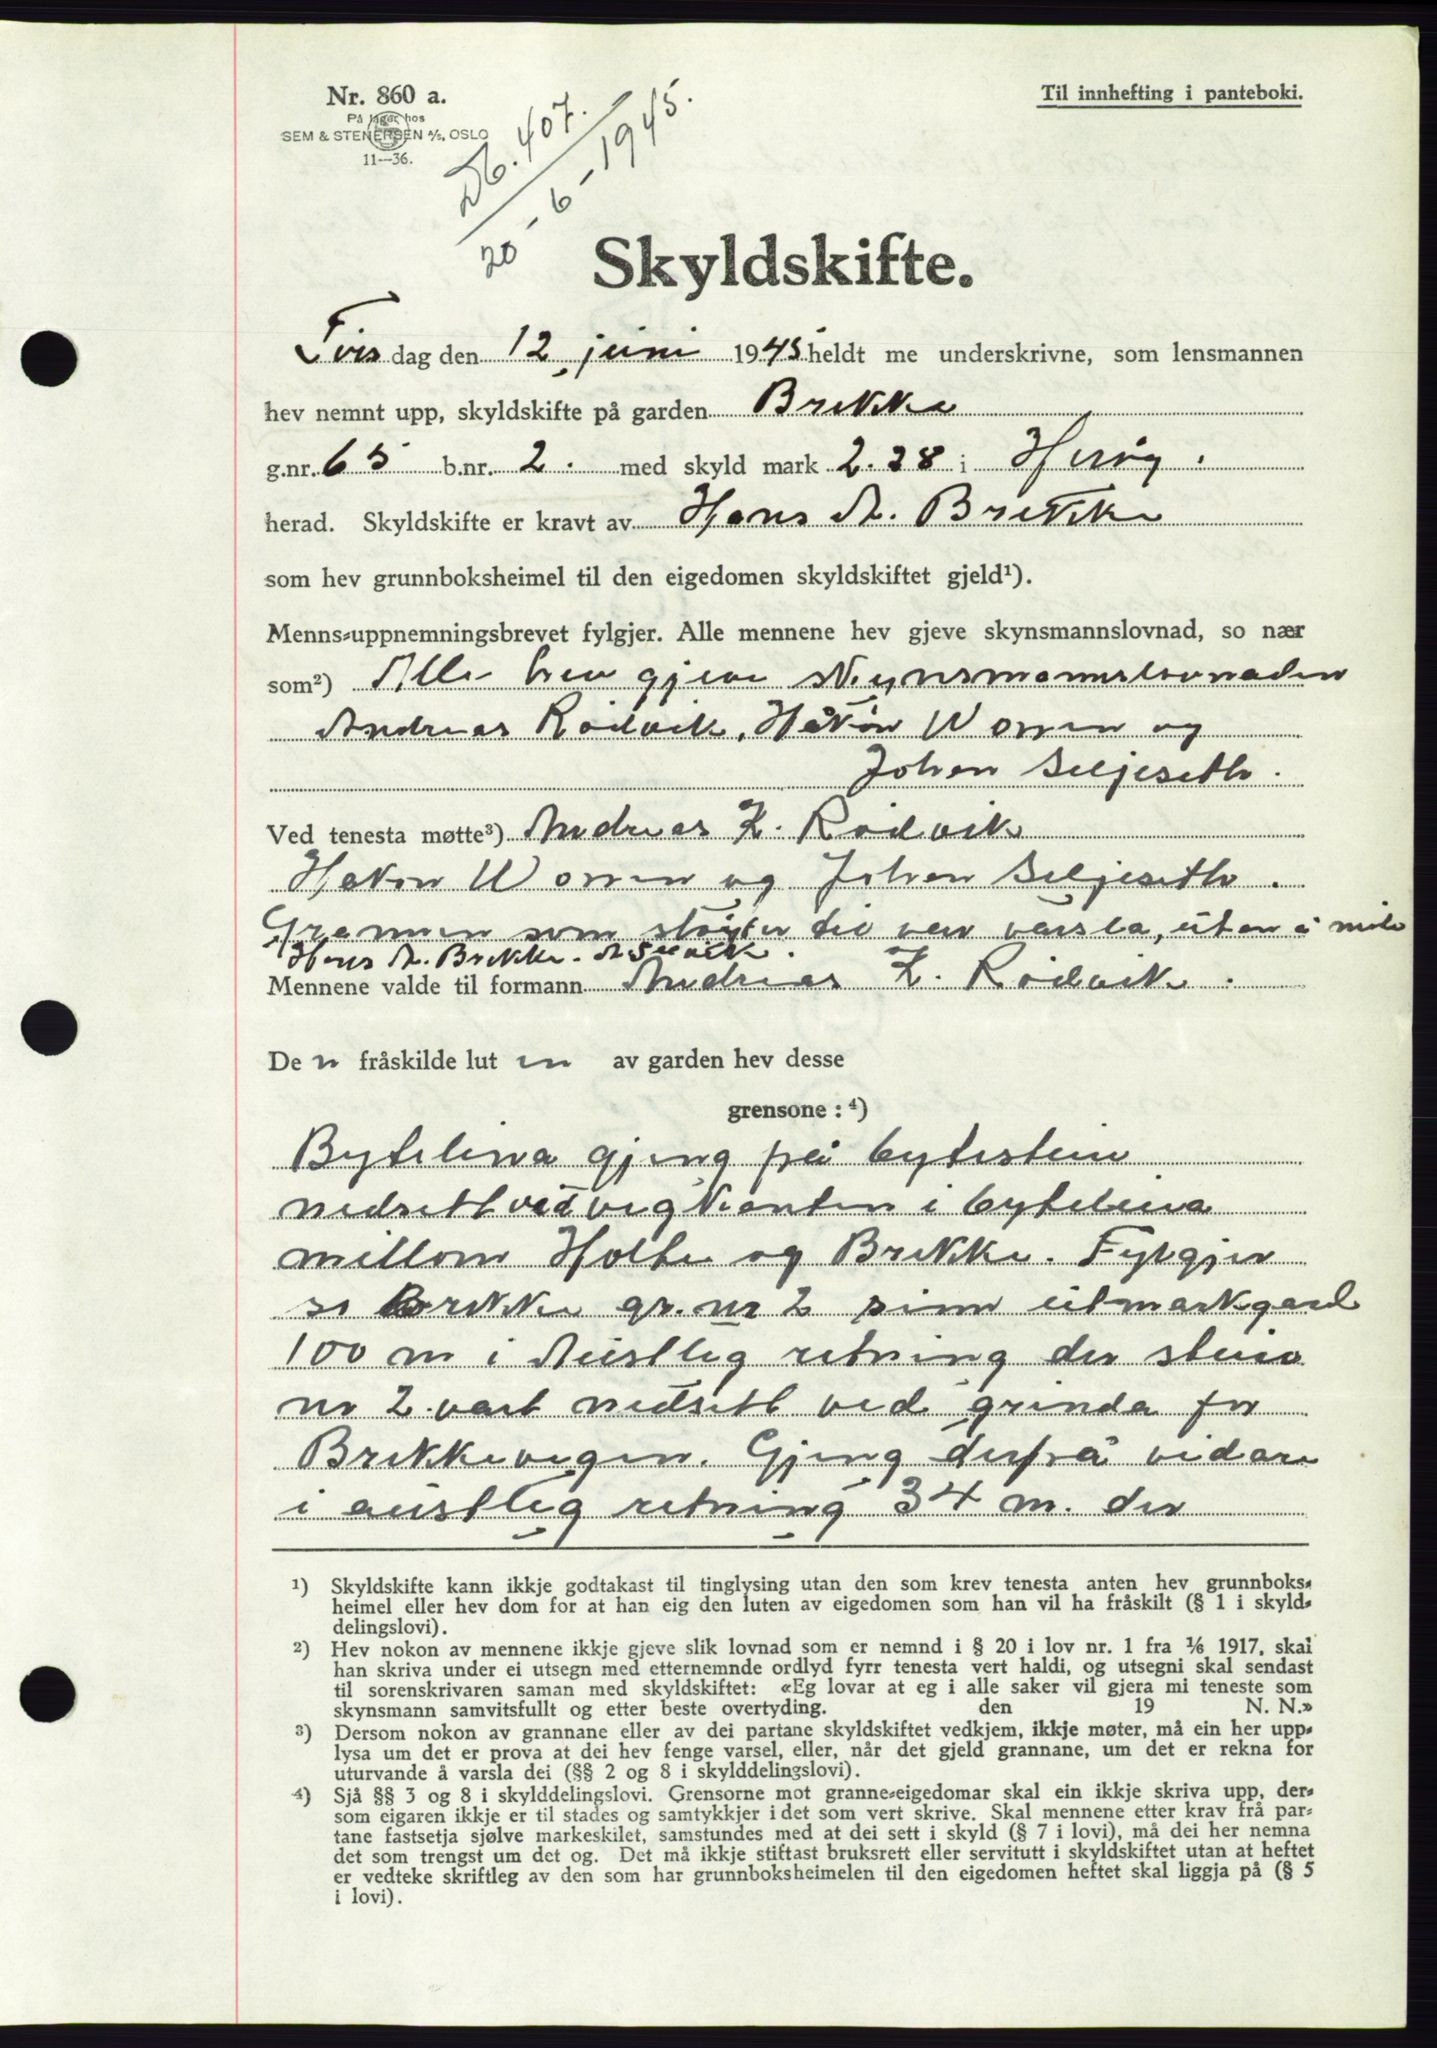 Nr. 860 a.
På lager hos
SEM & STENERSEN A/S, OSLO
11—36.
Til innhefting i panteboki.
Db. 407.
20-6-1945.
Skyldskifte.
Tirsdag den 12 juni 1945 heldt me underskrivne, som lensmannen
hev nemnt upp, skyldskifte på garden Brekke
g.nr. 65 b.nr. 2. med skyld mark 2.28 i Herøy.
herad. Skyldskifte er kravt av Hans A. Brekke
som hev grunnboksheimel til den eigedomen skyldskiftet gjeld¹).
Menns-uppnemningsbrevet fylgjer. Alle mennene hev gjeve skynsmannslovnad, so nær
som²) Alle hev gjeve skynsmannslovnaden
Andreas Rødvik, Håkon Worren og
Johan Seljeseth.
Ved tenesta møtte³) Andreas Z. Rødvik
Håkon Worren og Johan Seljeseth.
Grannen som støyter til var varsla, utan å møte
Hans A. Brekke.
Mennene valde til formann Andreas Z. Rødvik.
De n fråskilde lut en av garden hev desse
grensone: ⁴)
Bytelina gjeng frå bytestein
nedsett ved vegkanten i bytelina
millom Holte og Brekke. Fylgjer
so Brekke gr. nr 2 sinn utmarkgard
100 m i Austleg retning der stein
nr 2 vart nedsett ved grinda for
Brekkevegen. Gjeng derfrå vidare
i austleg retning 34 m. der
¹) Skyldskifte kann ikkje godtakast til tinglysing utan den som krev tenesta anten hev grunnboks-
heimel eller hev dom for at han eig den luten av eigedomen som han vil ha fråskilt (§ 1 i skyld-
delingslovi).
²) Hev nokon av mennene ikkje gjeve slik lovnad som er nemnd i § 20 i lov nr. 1 fra 1/6 1917, skal
han skriva under ei utsegn med etternemnde ordlyd fyrr tenesta vert haldi, og utsegni skal sendast
til sorenskrivaren saman med skyldskiftet: «Eg lovar at eg i alle saker vil gjera mi teneste som
skynsmann samvitsfullt og etter beste overtyding. den 19 N. N.»
³) Dersom nokon av grannane eller av dei partane skyldskiftet vedkjem, ikkje møter, må ein her upp-
lysa um det er prova at dei hev fenge varsel, eller, når det gjeld grannane, um det er rekna for
uturvande å varsla dei (§§ 2 og 8 i skylddelingslovi).
⁴) Sjå §§ 3 og 8 i skylddelingslovi. Grensorne mot granne-eigedomar skal ein ikkje skriva upp, der-
som eigaren ikkje er til stades og samtykkjer i det som vert skrive. Skal mennene etter krav frå par-
tane fastsetja sjølve markeskilet, samstundes med at dei sett i skyld (§ 7 i lovi), må dei her nemna
det som trengst um det og. Det må ikkje stiftast bruksrett eller servitutt i skyldskiftet utan at heftet
er vedteke skriftleg av den som har grunnboksheimelen til den eigedomen heftet skal liggja på (§ 5
i lovi).